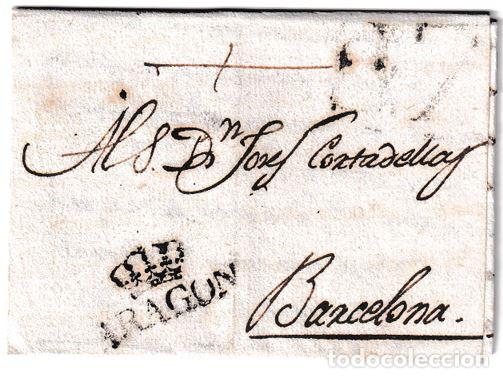 Al S. Dn. Josef Cortadellas
ARAGON
Barcelona.
todocoleccion